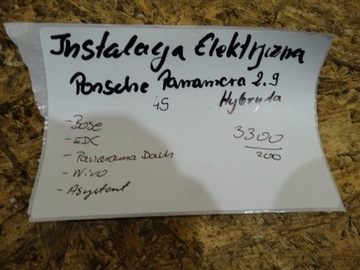 Instalacja Elektryczna
Porsche Panamera 2.9
4S Hybryda
- Bose
- EDC
- Panorama Dach
- Nivo
- Asystent
3300
200